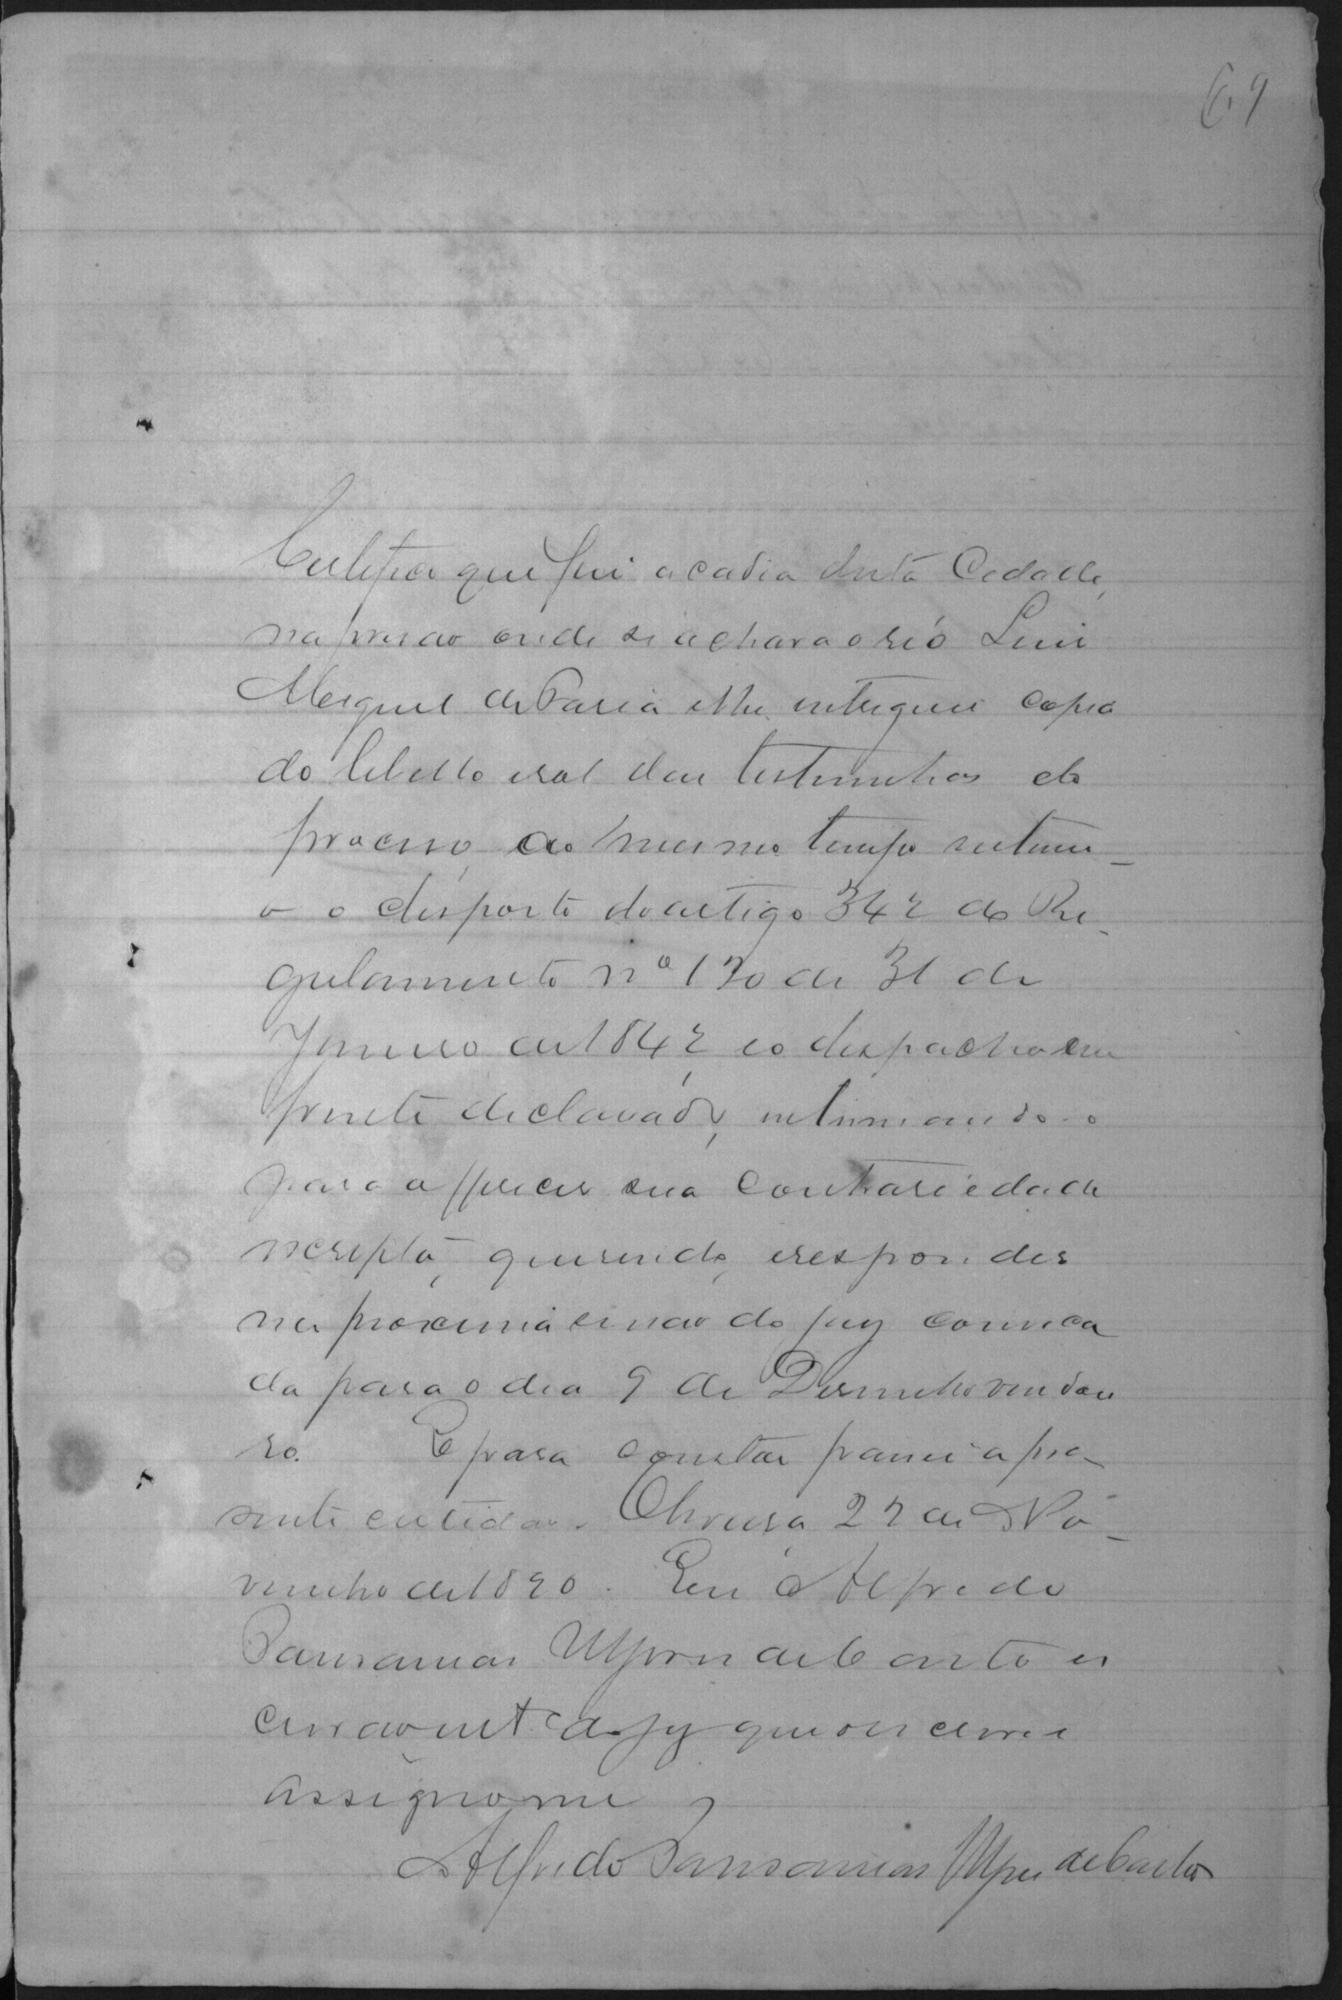 69
Certifico que fui a cadia desta Cidade,
na prisão onde se achava o réo Luiz
Miguel de Faria e lhe entreguei copia
do libello e rol das testimunhas do
processo, ao mesmo tempo
o disposto do artigo 342 do Re-
gulamento nº 120 de 31 de
Janeiro de 1842, e o despacho em
frente declarado, intimando-o
para offerecer sua contrariedade
escripta, querendo, e responder
na proxima sessão do jury convoca
da para o dia 9 de Desembro vindou
ro. E para constar passei a pre-
sente certidão. 27 de No-
vembro de 1890. Eu Alfredo
de Castro es
crivão do jury que o escrevi e
assigno-me
Alfredo de Castro